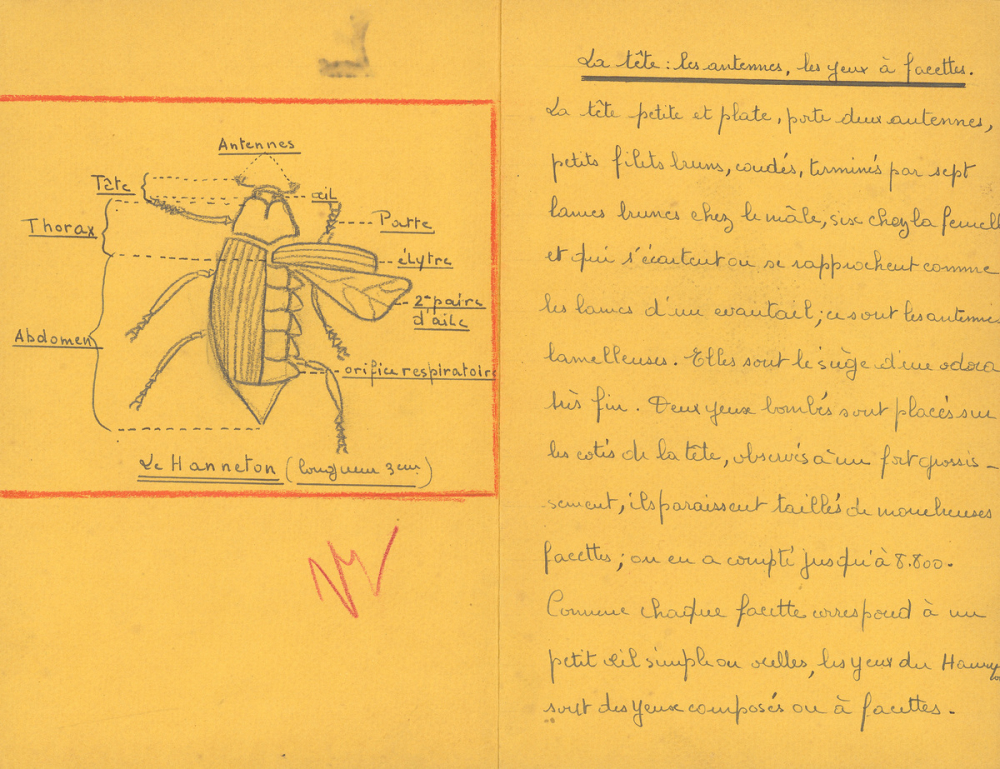 Antennes
Tête
œil
Patte
Thorax
élytre
2me paire
d'aile
Abdomen
orifice respiratoire
Le Hanneton (longueur 3cm)
La tête : les antennes, les yeux à facettes.
La tête petite et plate, porte deux antennes,
petits filets bruns, coudés, terminés par sept
lames brunes chez le mâle, six chez la femell
et qui s'écartent ou se rapprochent comme
les lames d'un evantail ; ce sont les antennes
lamelleuses. Elles sont le siège d'une odora
très fin. Deux yeux bombés sont placés sur
les cotés de la tête, observés à un fort grossis-
sement, ils paraissent taillés de nombreuses
facettes ; on en a compté jusqu'à 8.800.
Comme chaque facette correspond à un
petit œil simple ou ocelles, les yeux du
sont des yeux composés ou à facettes.